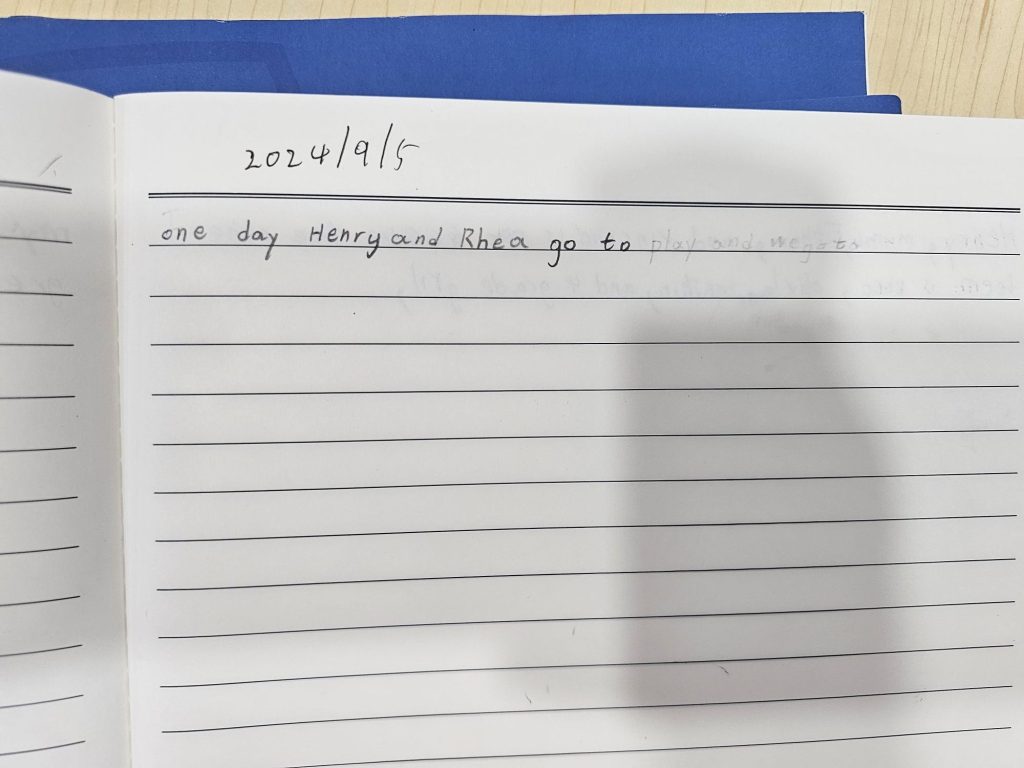 2024/9/5
one day Henry and Rhea go to play and we go to